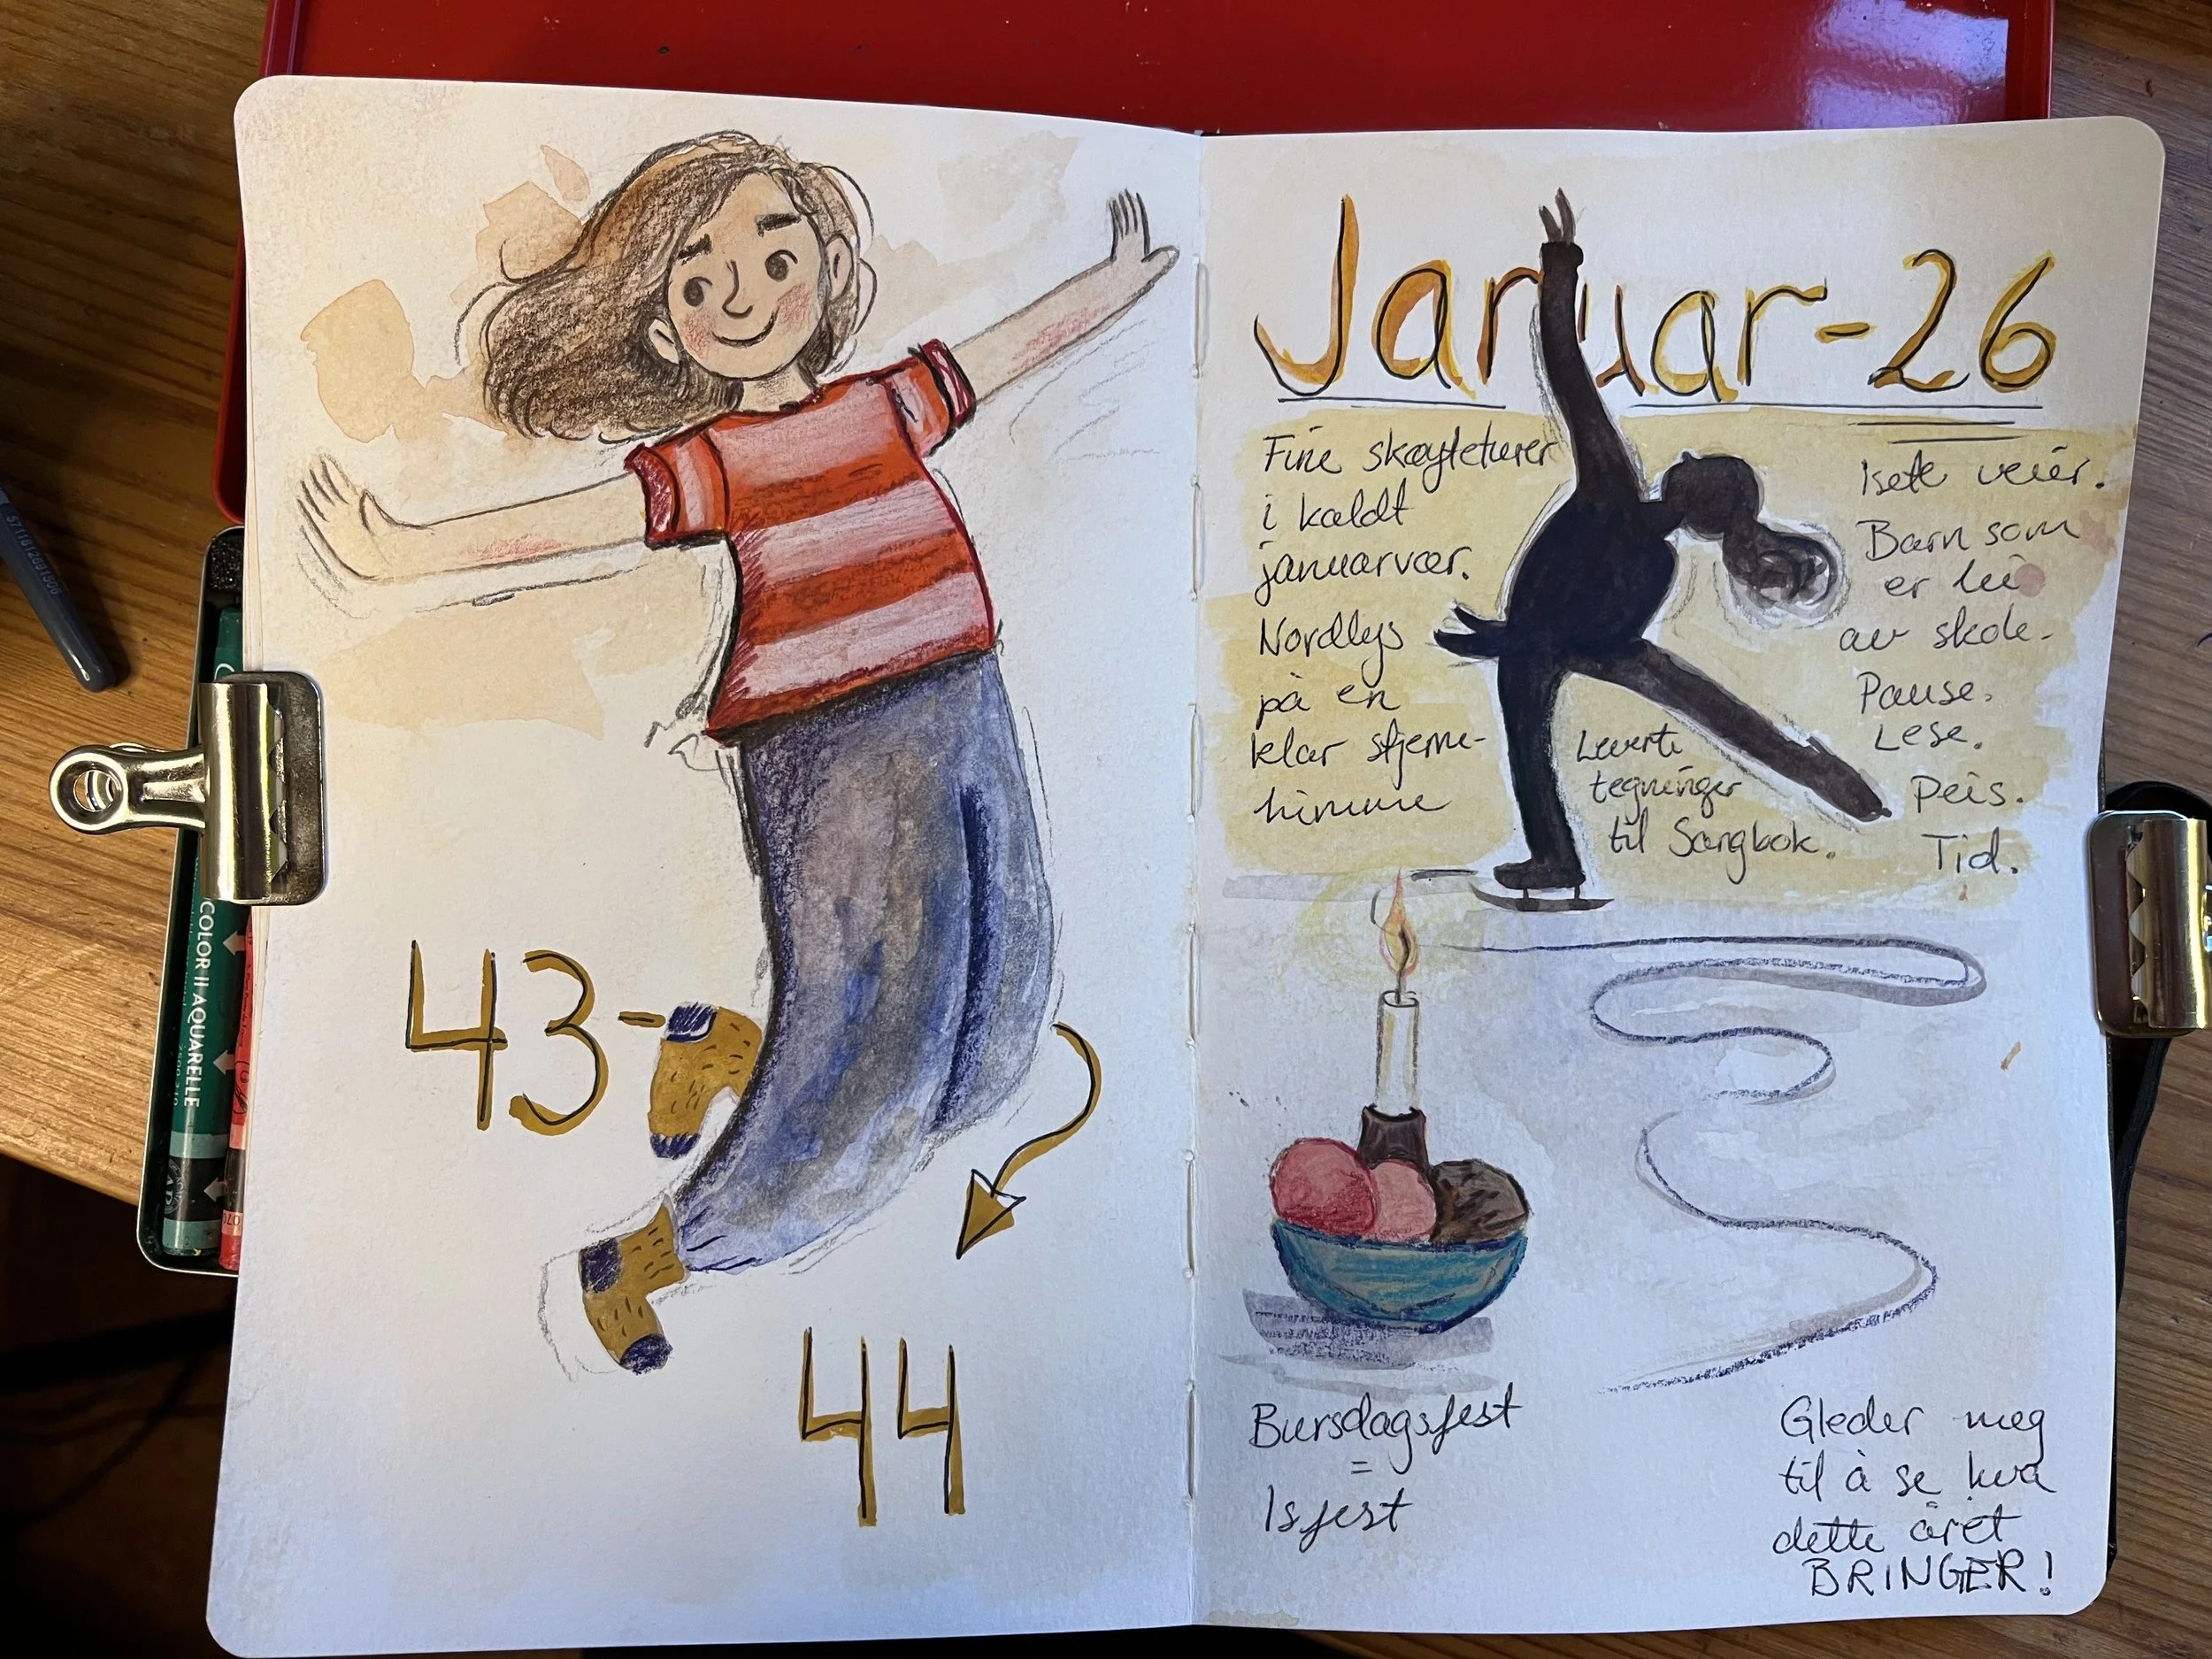 43-
44
Januar-26
Fine skøyteturer
i kaldt
januarvær.
Nordlys
på en
klar stjerne-
himmel
Isete veier.
Barn som
er lei
av skole.
Pause.
Lese.
Peis.
Tid.
Leverte
tegninger
til Sangbok.
Bursdagsfest
=
Isfest
Gleder meg
til å se kva
dette året
BRINGER!
COLOR II AQUARELLE